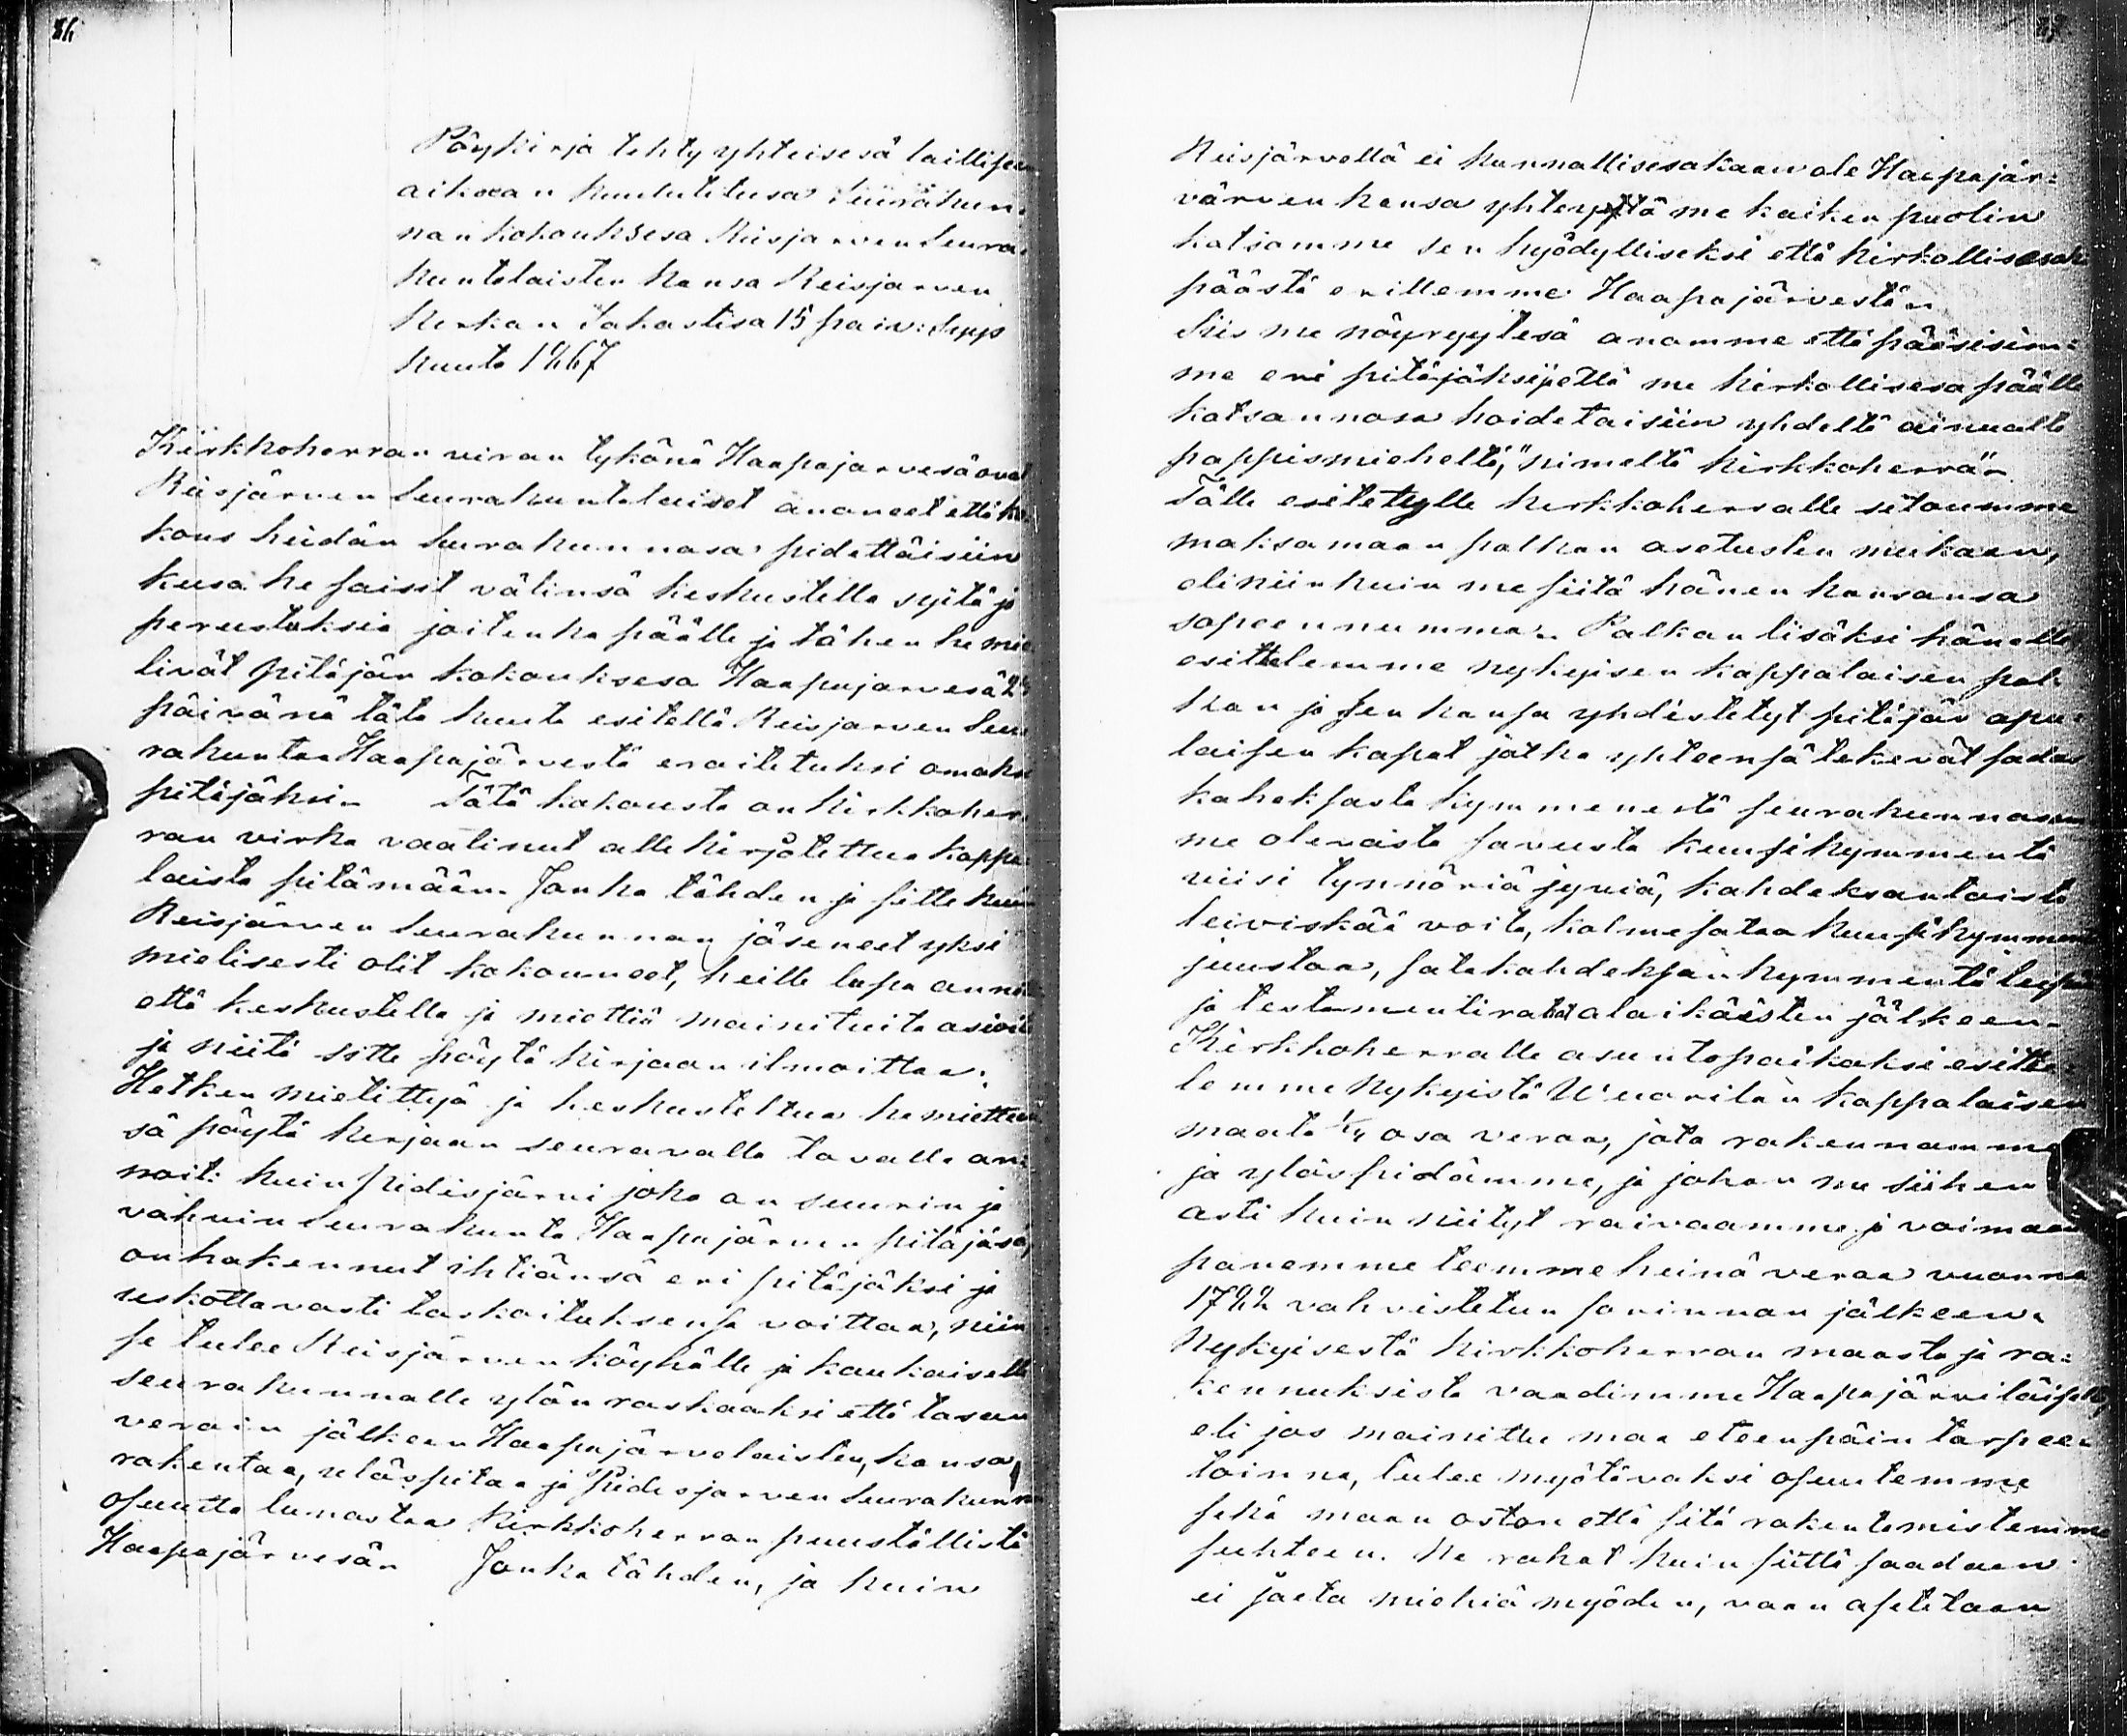 Pöykirja tehty yhteisesä laillisen
aikaan kuulutitusa Seuräkun-
nan kokouksesa Reisjarven Seura-
kuntalaisten kansa Reisjarven
kirkan Sakastisa 15 paiv: Syys
kuuta 1867
Kirkkoherran viran tykönä Haapajarvesä ovat
Reisjärven Seurakuntalaiset anoneet että ko-
kous heidän Seurakunnasa pidettäisiin
kusa he saisit välinsä keskustella syitä ja
perustuksia joitenka päälle ja tähen he mie
livät pitäjän kokouksesa Haapajarvesä
päivänä täta kuuta esitellä Reisjarven Seu
rakuntaa Haapajärvestä eroitetuksi omaksi
pitäjäksi. Tätä kokousta on kirkkoher
ran virka vaatinut allekirjotettua kappa-
laista pitämään. Jonka tähden ja sitte kuin
Reisjärven Seurakunnan jäseneet yksi
mielisesti olit kokouneet, heille lupa annet
että keskustella ja miettiä mainituita asioit
ja niitä sitte pöytä kirjaan ilmoittaa.
Hetken mietittyä ja keskusteltua he mietteen
sä pöytä kirjaan seuravalla tavalla ano
noit: kuin Pidisjärvi joka on suurin ja
vahvin Seurakunta Haapajärven pitäjäsä,
on hakennut ihtiänsä eri pitäjäksi ja
uskottavasti tarkoituksensa voittaa, niin
se tulee Reisjärven köyhälle ja kaukaiselle
seurakunnalle ylön raskaaksi että tasan
verain jälkeen Haapajärvelaisten, kansa
rakentaa, ylöspitaa ja Pidisjarven Seurakunnan
osuutta lunastaa kirkkoherran puustöllistä
Haapajärvesän Jonka tähden, ja kuin
Reisjärvellä ei kunnallisesakaan ole Haapajär-
värven kansa yhteyttä me kaiken puolin
katsomme sen hyödylliseksi että kirkollisesaki
päästä erillemme Haapajärvestä.
Siis me nöyryytesä anomme että pääsisim-
me eri pitäjäksi, että me kirkollisesa päälle
katsannosa hoidetaisiin yhdeltä ainualta
pappismieheltä, "nimeltä kirkkoherra".
Tälle esitetylle kirkkoherralle sitoumme
maksamaan palkan asetusten mukaan,
eli niin kuin me siitä hänen kansansa
sopeennumma. Palkan lisäksi hänelle
esittelemme nykyisen kappalaisen pal-
kan ja sen kansa yhdistetyt pitäjän apu-
laisen kapat jotka yhteensä tekevät sadas
kaheksasta kymmenestä seurakunnasam
me olevasta savusta kuusikymmentä
viisi tynnöriä jyviä, kahdeksantoista
leiviskää voita, kolmesataa kuusikymmentä
juustoa, satakahdeksankymmentä
ja testamentirahat alaikäisten jälkeen.
Kirkkoherralle asuntopaikaksi esitte-
lemme nykyistä Wuorilan kappalaisen
maata 1/4 osa veroa, jota rakennamme
ja ylöspidämme, ja johon me siihen
asti kuin niityt raivaamme ja voimaan
panemme teemme heinä veroa vuonna
1722 vahvistetun sovinnan jälkeen.
Nykyisestä kirkkoherran maasta ja ra-
kennuksista vaadimme Haapajärviläisiltä,
eli jos mainittu maa eteenpäin tarpee-
toinna, tulee myötäväksi osuutemme
sekä maan oston että sitä rakentamistemme
suhteen. Ne rahat kuin siittä saadaan
ei jaeta miehiä myöden, vaan asetetaan